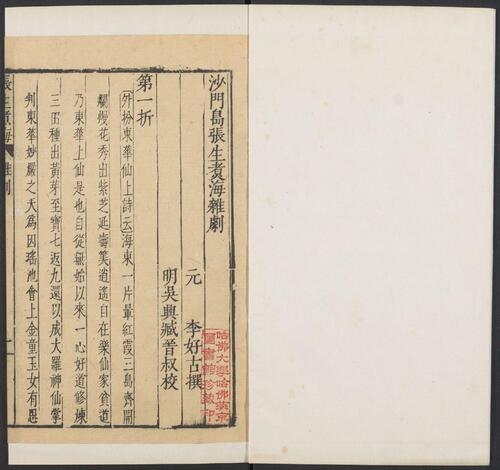 沙門島張生煮海雜劇
元 李好古撰
明吳興臧晉叔校
第一折
外扮東華仙上詩云海東一片暈紅霞三島齊開
爛熳花秀出紫芝延壽筭逍遙自在樂仙家貧道
乃東華上仙是也自從無始以來一心好道修煉
三田種出黃芽至寶七返九還以成大羅神仙掌
判東華妙嚴之天爲因瑤池會上金童玉女有思
張生煮海 雜劇
一
哈佛大學哈佛燕京
圖書館珍藏印